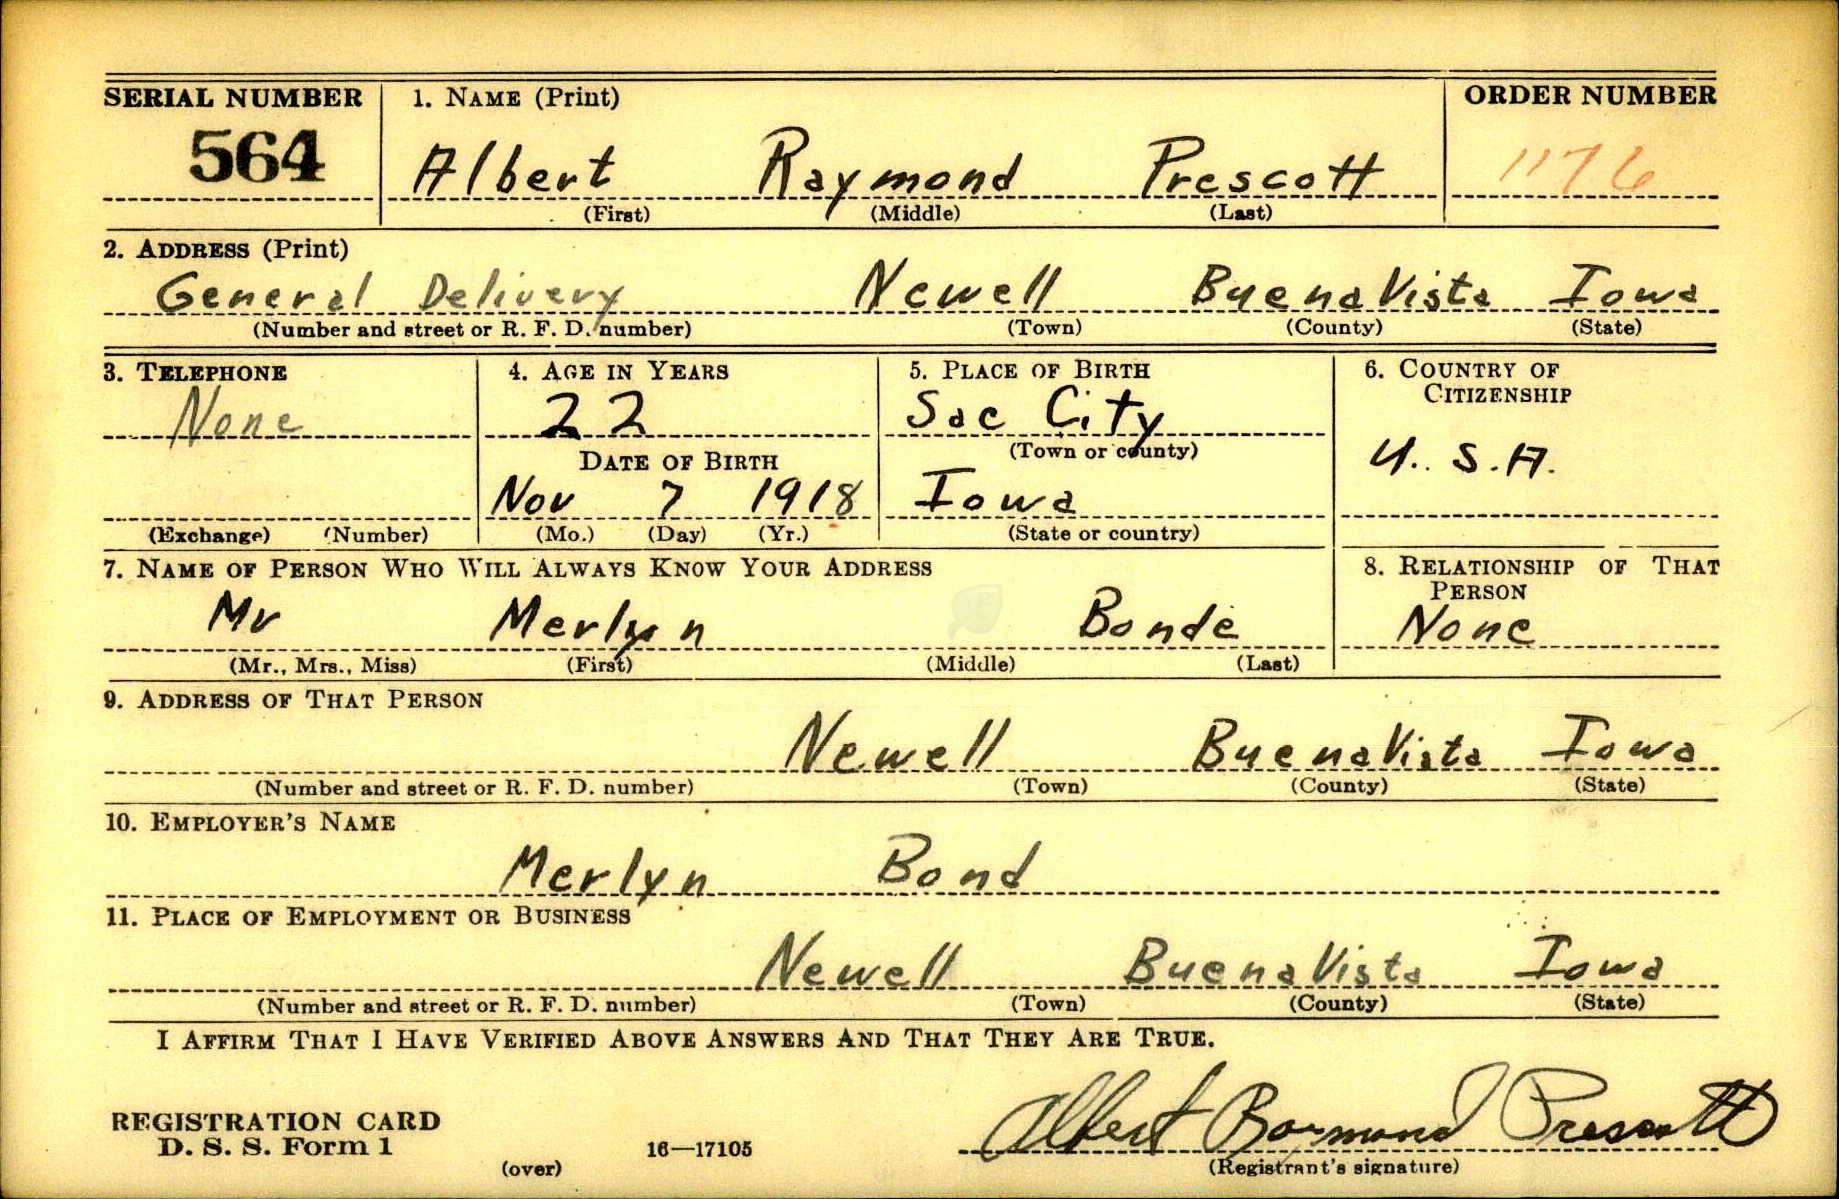 SERIAL NUMBER 1. NAME (Print) ORDER NUMBER
564 Albert Raymond Prescott 1176
(First) (Middle) (Last)
2. ADDRESS (Print)
General Delivery Newell Buena Vista Iowa
(Number and street or R. F. D. number) (Town) (County) (State)
3. TELEPHONE 4. AGE IN YEARS 5. PLACE OF BIRTH 6. COUNTRY OF
CITIZENSHIP
None 22 Sac City
(Town or county)
U. S. A.
DATE OF BIRTH
Nov 7 1918 Iowa
(Exchange) (Number) (Mo.) (Day) (Yr.) (State or country)
7. NAME OF PERSON WHO WILL ALWAYS KNOW YOUR ADDRESS 8. RELATIONSHIP OF THAT
PERSON
Mr Merlyn Bonde None
(Mr., Mrs., Miss) (First) (Middle) (Last)
9. ADDRESS OF THAT PERSON
Newell Buena Vista Iowa
(Number and street or R. F. D. number) (Town) (County) (State)
10. EMPLOYER'S NAME
Merlyn Bond
11. PLACE OF EMPLOYMENT OR BUSINESS
Newell Buena Vista Iowa
(Number and street or R. F. D. number) (Town) (County) (State)
I AFFIRM THAT I HAVE VERIFIED ABOVE ANSWERS AND THAT THEY ARE TRUE.
Albert Raymond Prescott
REGISTRATION CARD
D. S. S. Form 1 16—17105
(over) (Registrant's signature)